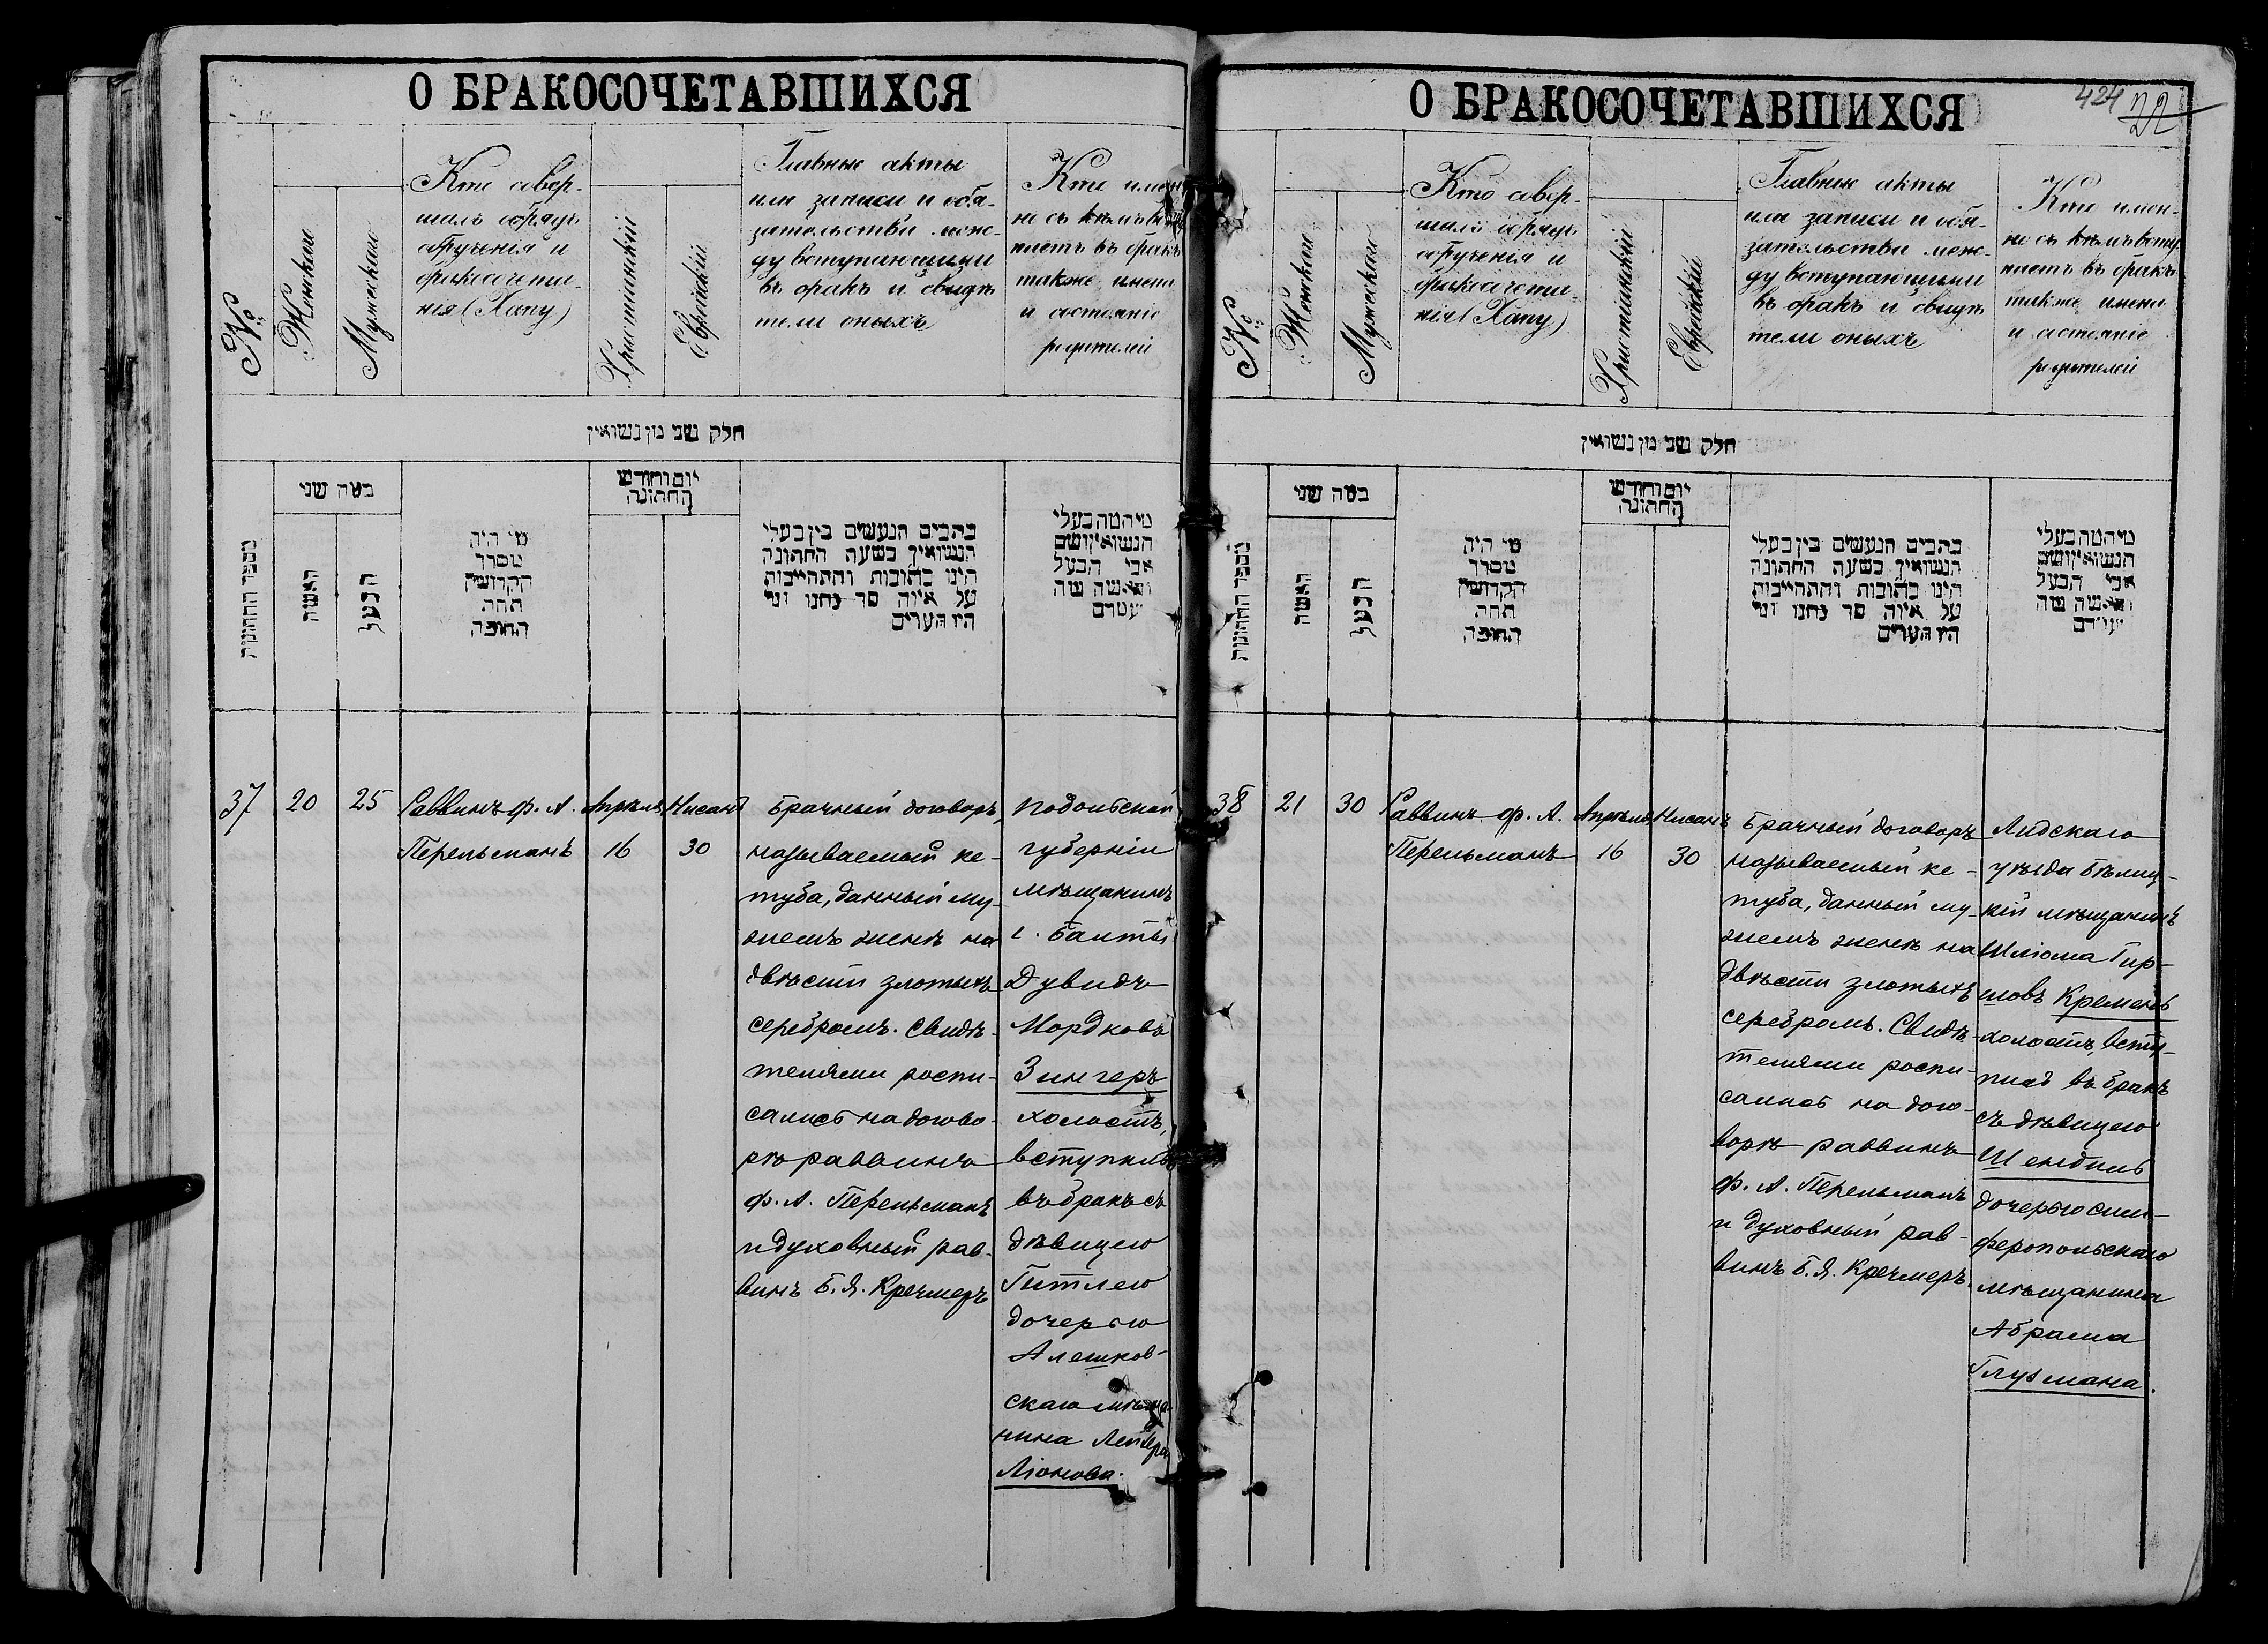 О БРАКОСОЧЕТАВШИХСЯ
№
Женская
Мужеская
Кто совер-
шалъ обрядъ
обрученія и
бракосочета-
нія (Хупу)
Христіанскій
Еврейскій
Главные акты
или записи и обя-
зательства меж-
ду вступающими
въ бракъ и свидѣ
тели оныхъ
Кто имен
но съ кѣмъ всту
паетъ въ бракъ
также имена
и состояніе
родителей
חלק שני מן נשואין
מספר החתונות
כמה שני
האשה
הבעל
מי היה
מסדר
הקדושין
תחת
החופה
יום וחודש
החתונה
כתבים הנעשים בין בעלי
הנשואין בשעה החתונה
היינו כתובות והתחייבות
על איזה סך נתנו ומי
היו הערים
מי המה בעלי
הנשואין ושם
אבי הבעל
והאשה מה
מעמדם
37
20
25
Раввинъ Ф. А.
Перельманъ
Апрѣля
16
Нисанъ
30
Брачный договоръ,
называемый ке-
туба, данный му-
жемъ женѣ на
двѣсти злотыхъ
серебромъ. Свидѣ-
телями роспи-
сались на догово-
рѣ раввинъ
Ф. А. Перельманъ
и духовный рав-
винъ Б. Я. Кречмеръ
Подольской
губерніи
мѣщанинъ
г. Балты
Дувидъ
Мордковъ
Зингеръ
холостъ,
вступилъ
въ бракъ съ
дѣвицею
Гитлею
дочерью
Алешков-
скаго мѣща-
нина Лейзера
Ліонова.
О БРАКОСОЧЕТАВШИХСЯ
424
22
№
Женская
Мужеская
Кто совер-
шалъ обрядъ
обрученія и
бракосочета-
нія (Хупу)
Христіанскій
Еврейскій
Главные акты
или записи и обя-
зательства меж-
ду вступающими
въ бракъ и свидѣ
тели оныхъ
Кто имен-
но съ кѣмъ всту
паетъ въ бракъ
также имена
и состояніе
родителей
חלק שני מן נשואין
מספר החתונות
כמה שני
האשה
הבעל
מי היה
מסדר
הקדושין
תחת
החופה
יום וחודש
החתונה
כתבים הנעשים בין בעלי
הנשואין בשעה החתונה
היינו כתובות והתחייבות
על איזה סך נתנו ומי
היו הערים
מי המה בעלי
הנשואין ושם
אבי הבעל
והאשה מה
מעמדם
38
21
30
Раввинъ Ф. А.
Перельманъ
Апрѣля
16
Нисанъ
30
Брачный договоръ
называемый ке-
туба, данный му-
жемъ женѣ на
двѣсти злотыхъ
серебромъ. Свидѣ-
телями роспи-
сались на дого-
ворѣ раввинъ
Ф. А. Перельманъ
и духовный рав-
винъ Б. Я. Кречмеръ.
Лидскаго
уѣзда Бѣлиц-
кій мѣщанинъ
Шліома Гир-
шовъ Кремень
холостъ, всту-
пилъ въ бракъ
съ дѣвицею
Шейндль
дочерью сим-
феропольскаго
мѣщанина
Абрама
Глузмана.